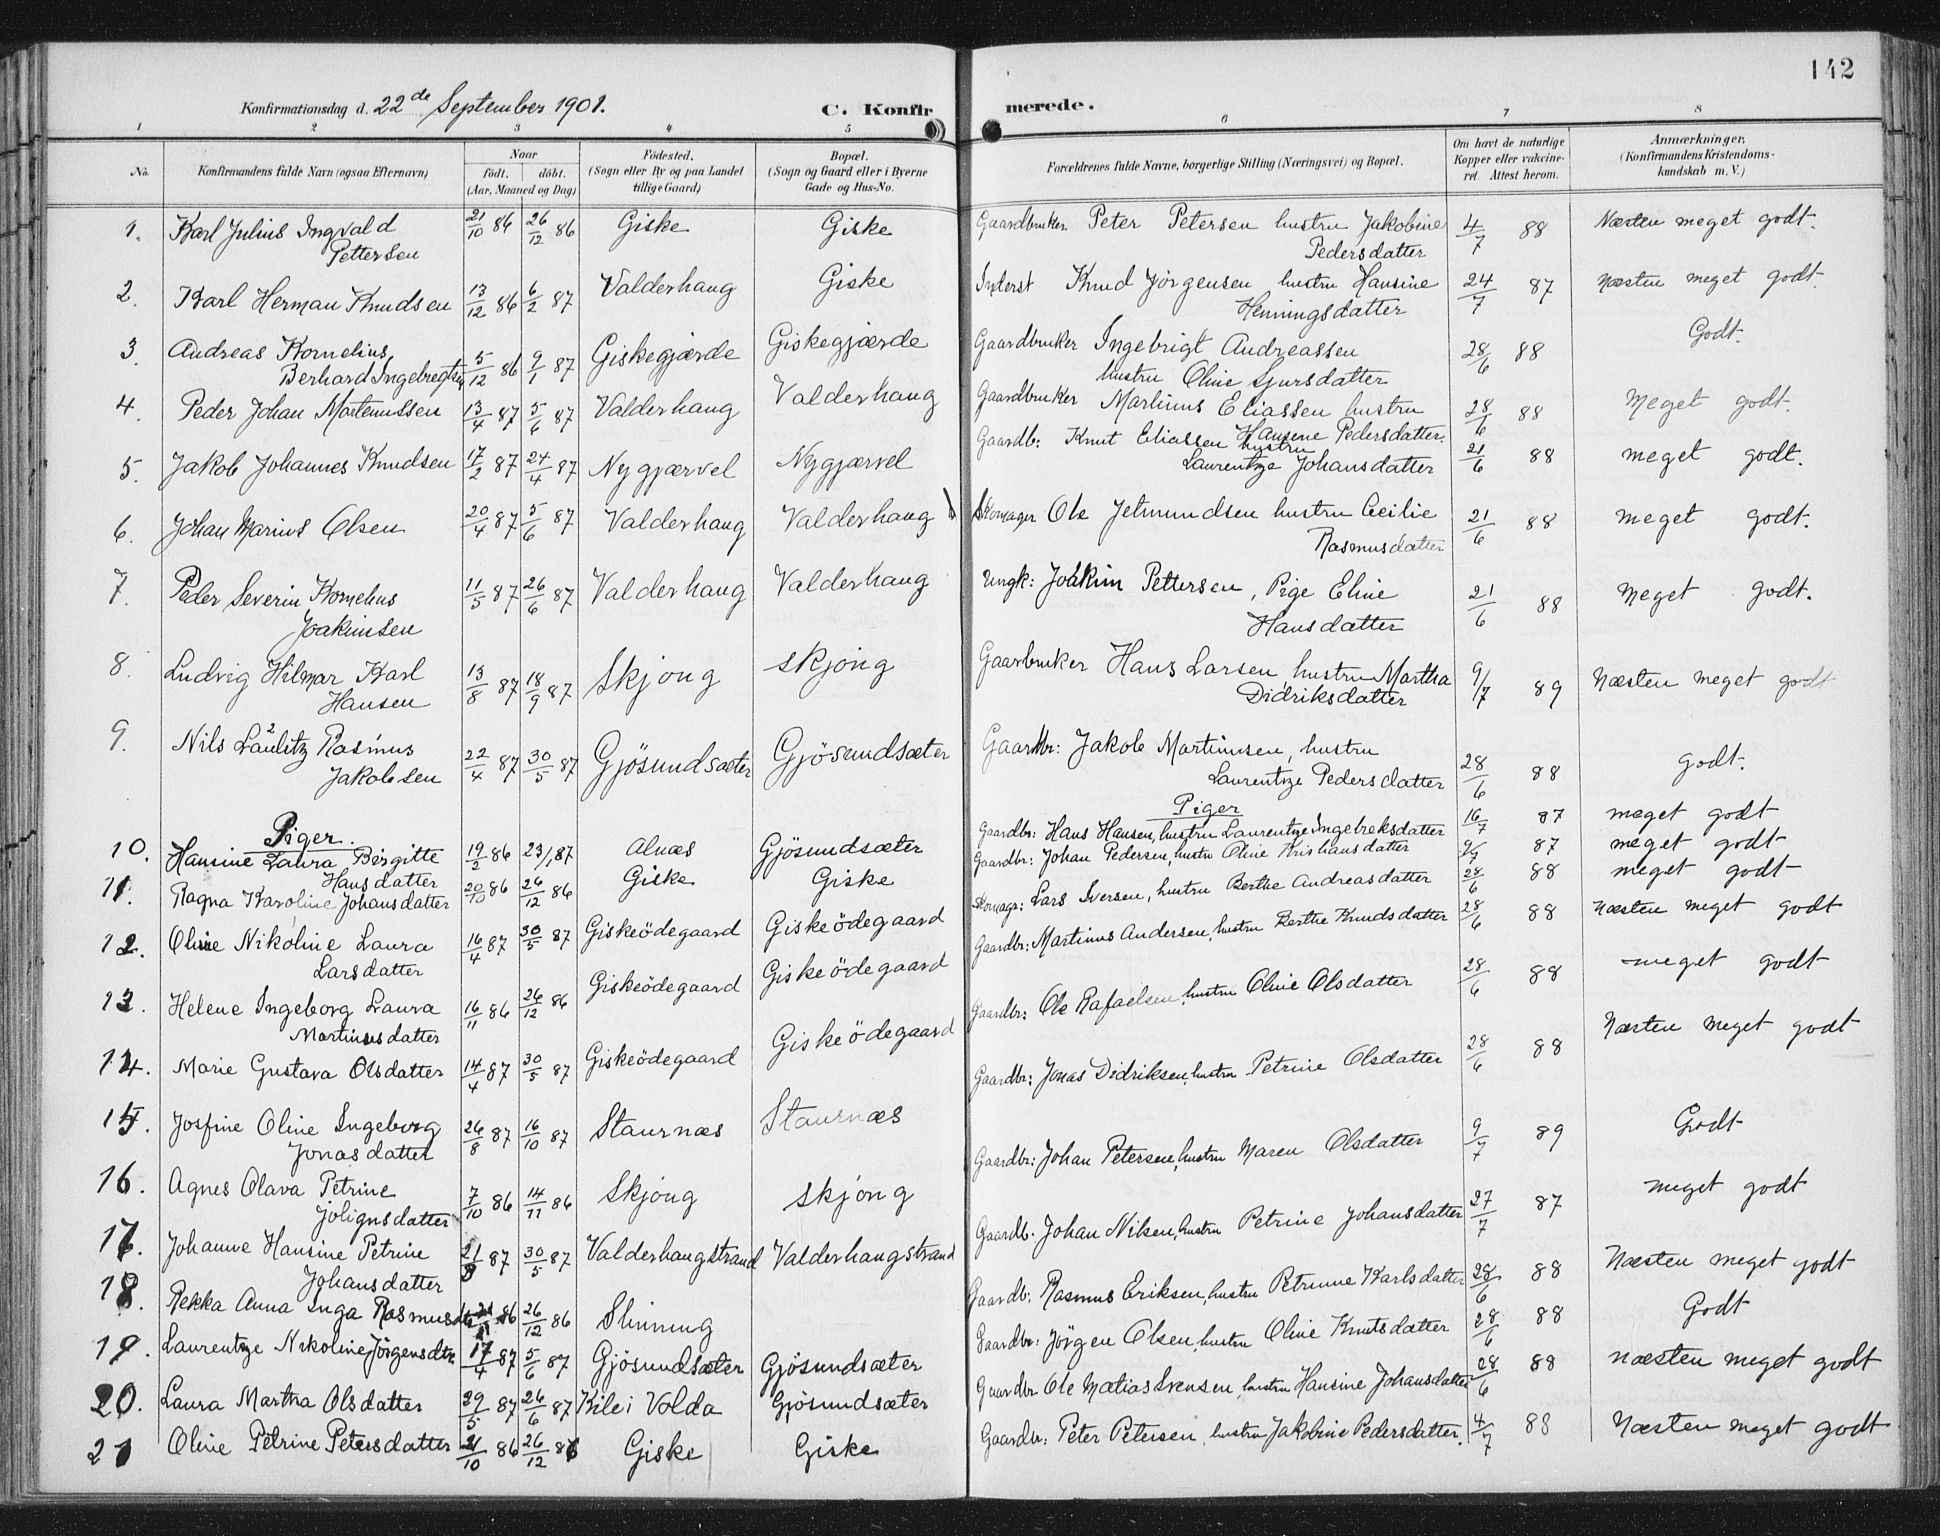 142
Konfirmationsdag d. 22de September 1901. C. Konfirmerede.
1 2 3 4 5 6 7 8
No. Konfirmandens fulde Navn (ogsaa Efternavn) Naar født. døbt. (Aar, Maaned og Dag) Fødested. (Sogn eller By og paa Landet tillige Gaard) Bopæl. (Sogn og Gaard eller i Byerne Gade og Hus-No. Forældrenes fulde Navne, borgerlige Stilling (Næringsvei) og Bopæl. Om havt de naturlige Kopper eller vakcineret. Attest herom. Anmærkninger, (Konfirmandens Kristendomskundskab m. V.)
1. Karl Julius Ingvald Pettersen 21/10 86 26/12 86 Giske Giske Gaardbruker Peter Petersen hustru Jakobine Pedersdatter 4/7 88 Næsten meget godt.
2. Karl Herman Knudsen 13/12 86 6/2 87 Valderhaug Giske Inderst Knud Jørgensen hustru Hansine Henningsdatter 24/7 87 Næsten meget godt.
3. Andreas Kornelius Berhard Ingebregtsen 5/12 86 9/1 87 Giskegjærde Giskegjærde Gaardbruker Ingebrigt Andreassen hustru Oline Sjursdatter 28/6 88 Godt.
4. Peder Johan Martenussen 13/4 87 5/6 87 Valderhaug Valderhaug Gaardbruker Martinus Eliassen hustru Hansene Pedersdatter. 28/6 88 Meget godt.
5. Jakob Johannes Knudsen 17/2 87 24/4 87 Nygjærvel Nygjærvel Gaardb: Knut Eliassen hustru Laurentze Johansdatter 21/6 88 meget godt.
6. Johan Marius Olsen 20/4 87 5/6 87 Valderhaug Valderhaug Skomager Ole Jetmundsen hustru Cecilie Rasmusdatter 21/6 88 meget godt.
7. Peder Severin Kornelius Joakimsen 11/5 87 26/6 87 Valderhaug Valderhaug Ungk: Joakim Pettersen, Pige Eline Hansdatter 21/6 88 Meget godt.
8. Ludvig Hilmar Karl Hansen 13/8 87 18/9 87 Skjong Skjong Gaarbruker Hans Larsen, hustru Martha Didriksdatter 9/7 89 Næsten meget godt
9. Nils Laulitz Rasmus Jakobsen 22/4 87 30/5 87 Gjösundsæter Gjösundsæter Gaardbr: Jakob Martinusen, hustru Laurentze Pedersdatter 28/6 88 godt.
Piger. Piger
10. Hansine Laura Birgitte Hansdatter 19/2 86 23/1 87 Alnæs Gjösundsæter Gaardbr: Hans Hansen, hustru Laurentze Ingebreksdatter 16/7 87 meget godt
11. Ragna Karoline Johansdatter 20/10 86 26/12 86 Giske Giske Gaardbr: Johan Pedersen, hustru Oline Kristiansdatter 9/7 87 meget godt
12. Oline Nikoline Laura Larsdatter 16/4 87 30/5 87 Giskeödegaard Giskeödegaard Skomagr: Lars Iversen, hustru Berthe Andreasdatter 28/6 88 meget godt
13. Helene Ingeborg Laura Martinusdatter 16/11 86 26/12 86 Giskeödegaard Giskeödegaard Gaardbr: Martinus Andersen, hustru Berthe Knudsdatter 28/6 88 Næsten meget godt
14. Marie Gustava Olsdatter 14/4 87 30/5 87 Giskeödegaard Giskeödegaard Gaardbr: Ole Rafaelsen, hustru Oline Olsdatter 28/6 88 meget godt
15. Josfine Oline Ingeborg Jonasdatter 26/8 87 16/10 87 Staurnæs Staurnæs Gaardbr: Jonas Didriksen, hustru Petrine Olsdatter 28/6 88 Næsten meget godt
16. Agnes Olava Petrine 7/10 86 14/11 86 Skjong Skjong Gaardbr: Johan Petersen, hustru Maren Olsdatter 9/7 89 Godt
17. Johanne Hansine Petrine Johansdatter 21/3 87 30/5 87 Valderhaugstrand Valderhaugstrand Gaardb. Johan Nilsen, hustru Petrine Johansdatter 27/7 87 meget godt
18. Rekka Anna Inga Rasmusdtr 86 26/12 86 Slinning Gaardb: Rasmus Eriksen, hustru Petrinne Karlsdatter 28/6 88 Næsten meget godt
19. Laurentze Nikoline Jörgensdtr 17/4 87 5/6 87 Gjösundsæter Gjösundsæter Gaardbr: Jörgen Olsen, hustru Oline Knutsdatter 28/6 88 Godt
20. Laura Martha Olsdatter 29/5 87 26/6 87 Kile i Volda Gjösundsæter Gaardbr Ole Matias Svensen, hustru Hansine Johansdatter 28/6 88 næsten meget godt
21 Oline Petrine Petersdatter 21/10 86 26/12 86 Giske Giske Gaardbr: Peter Petersen, hustru Jakobine Pedersdatter. 4/7 88 Næsten meget godt